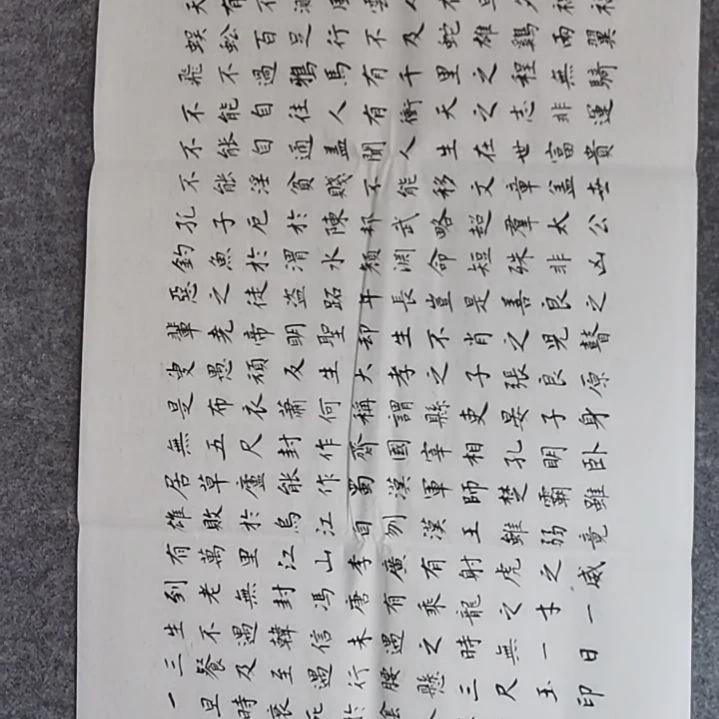 天有不測風雲人有旦夕禍福
蜈蚣百足行不及蛇雄鷄兩翼
飛不過鴉馬有千里之程無騎
不能自往人有衝天之志非運
不能自通盖聞人生在世富貴
不能淫貧賤不能移文章盖世
孔子厄於陳邦武略超羣太公
釣魚於渭水顏淵命短殊非凶
惡之徒盗跖年長豈是善良之
輩堯帝明聖却生不肖之兒瞽
叟愚頑及生大孝之子張良原
是布衣蕭何稱謂縣吏晏子身
無五尺封作齊國宰相孔明卧
居草廬能作蜀漢軍師楚霸雖
雄敗於烏江自刎漢王雖弱竟
有萬里江山李廣有射虎之威
列老無封馮唐有乘龍之才一
生不遇韓信未遇之時無一日
三餐及至遇行腰懸三尺玉印
一旦時衰死於